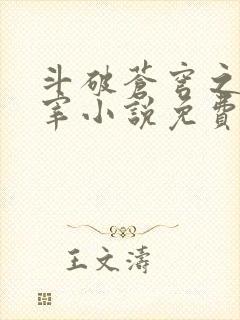 斗破蒼穹之
宰小說免費
王文濤